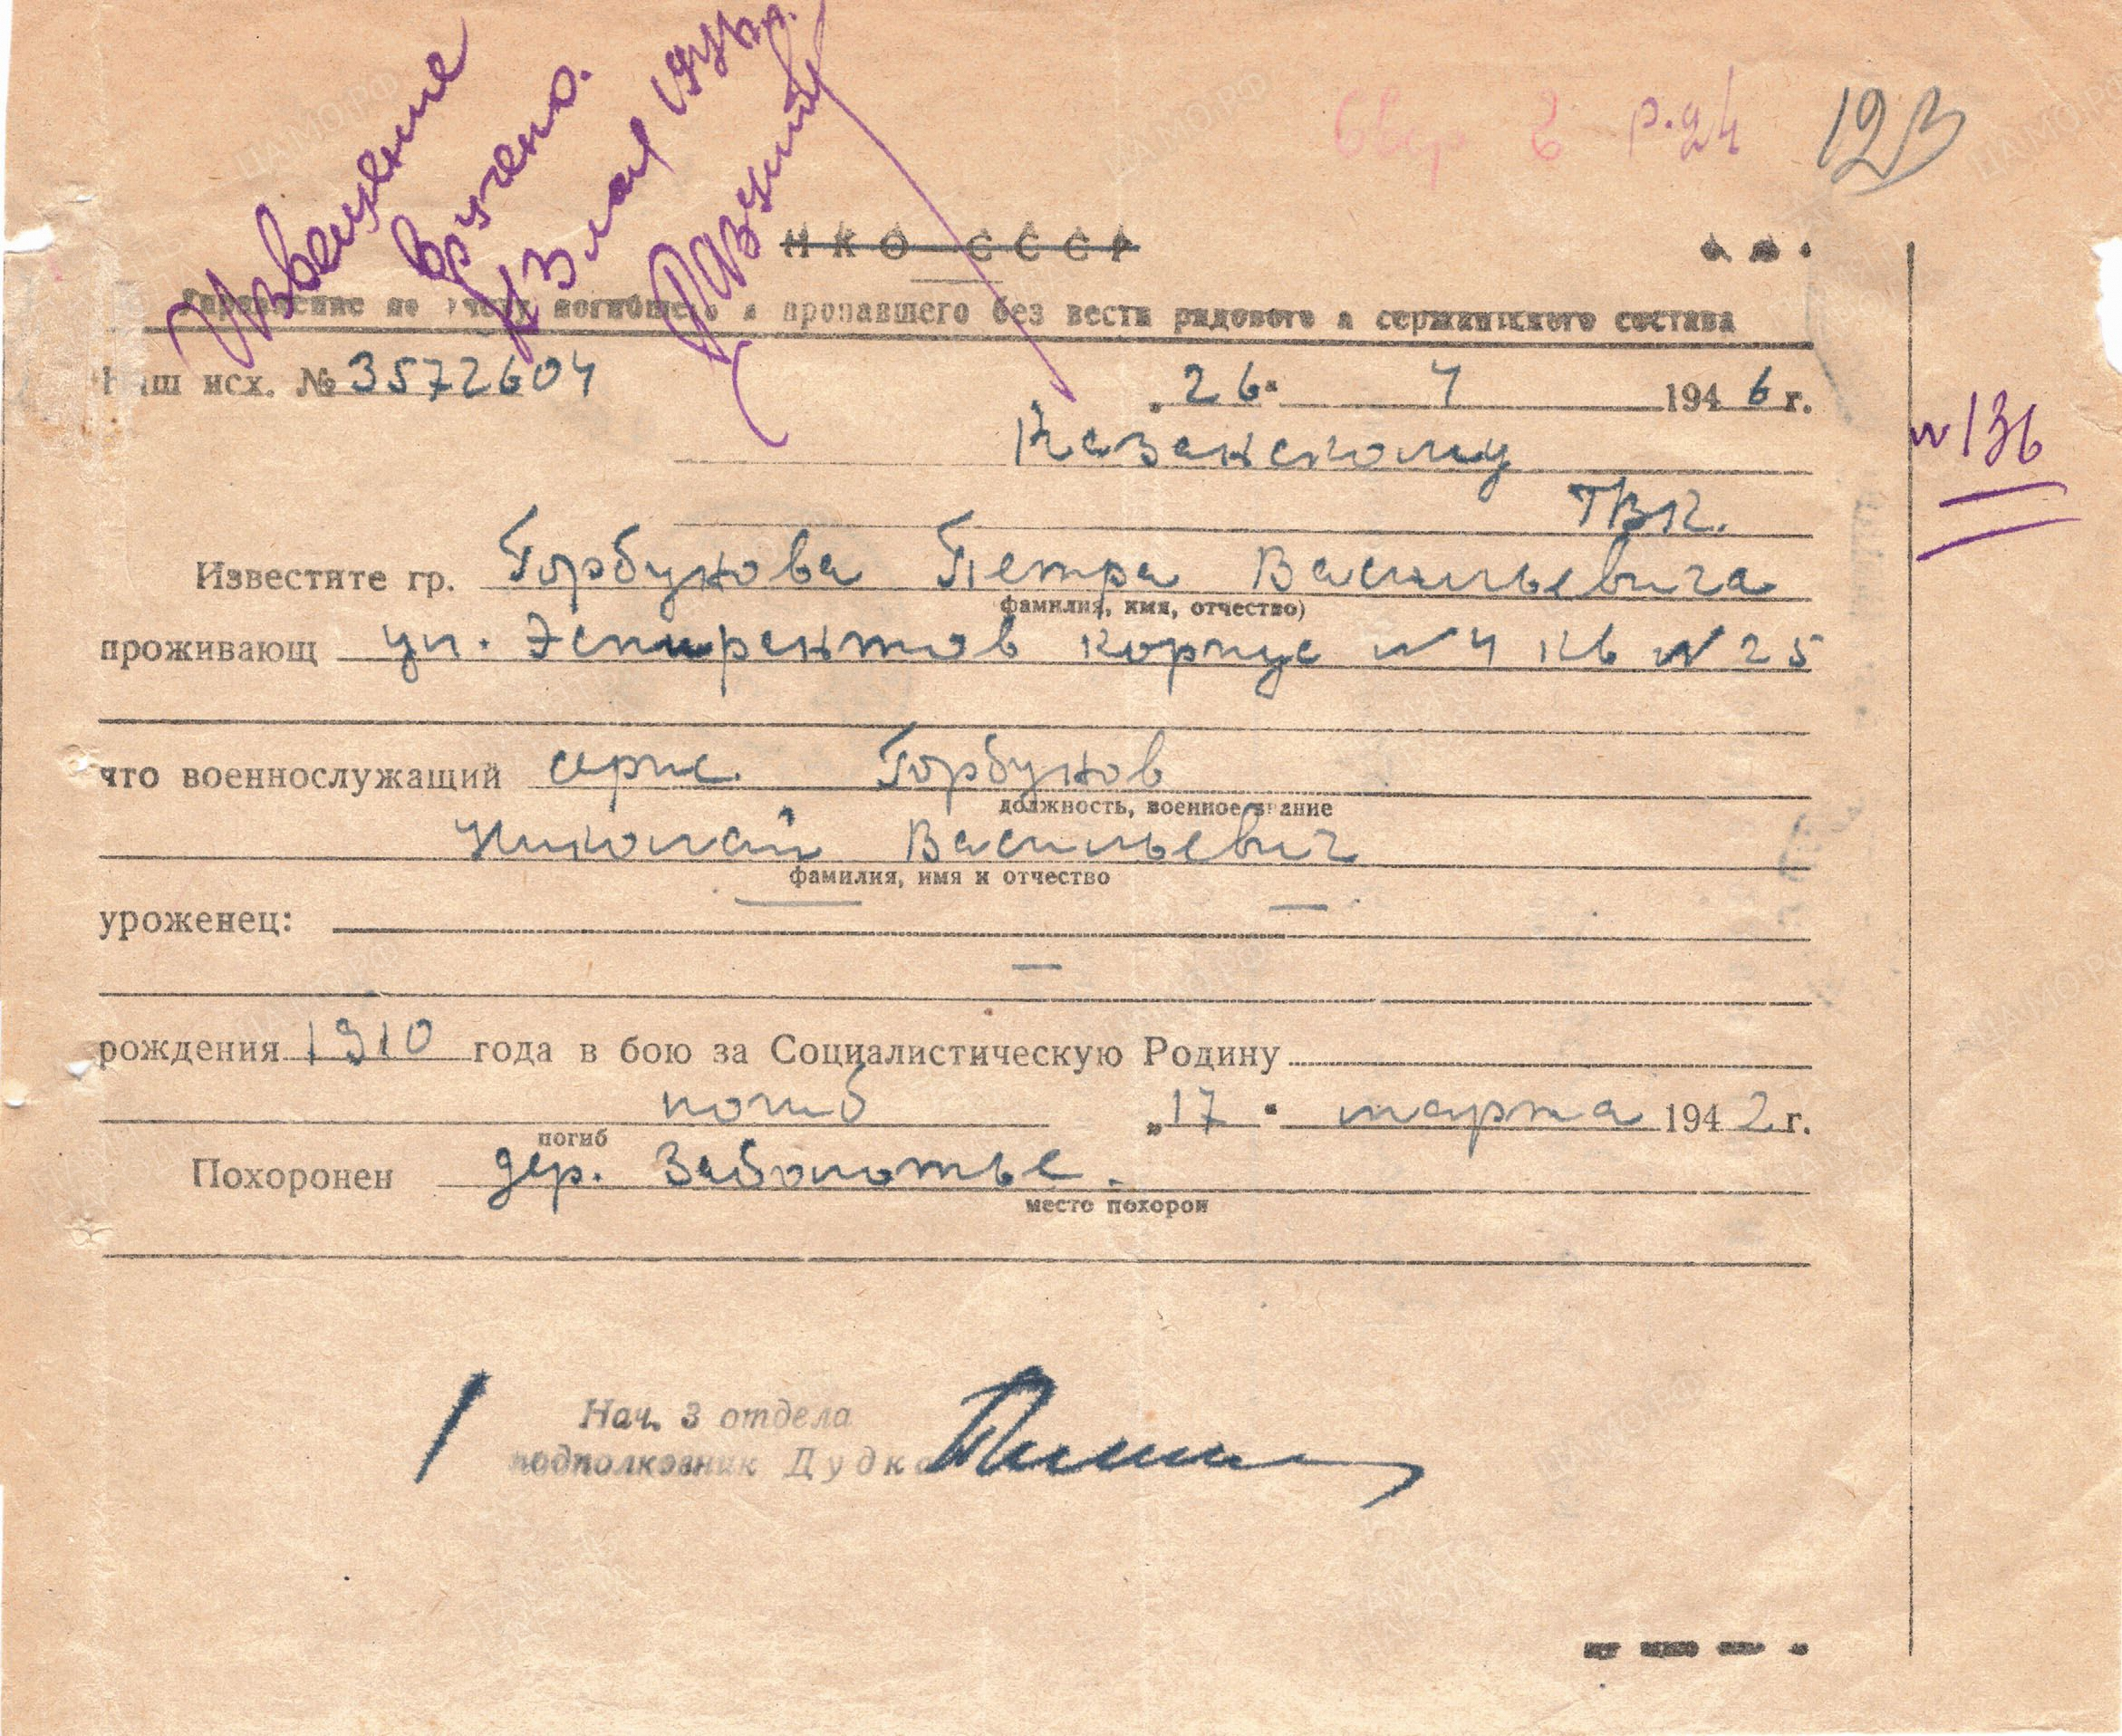 Извещение
вручено.
Р. 24
123
НКО СССР
Управление по учету погибшего и пропавшего без вести рядового и сержантского состава
Наш исх. № 3572604 „26" 4 1946 г.
№ 136
Казанскому
ГВК.
Известите гр. Горбунова Петра Васильевича
фамилия, имя, отчество)
проживающ ул. Эсперантов корпус № 4 кв № 25
что военнослужащий серж. Горбунов
должность, военное звание
Николай Васильевич
фамилия, имя и отчество
уроженец:
рождения 1910 года в бою за Социалистическую Родину
погиб „17" марта 1942 г.
погиб
Похоронен дер. Заболотье.
место похорон
Нач. 3 отдела
подполковник Дудко